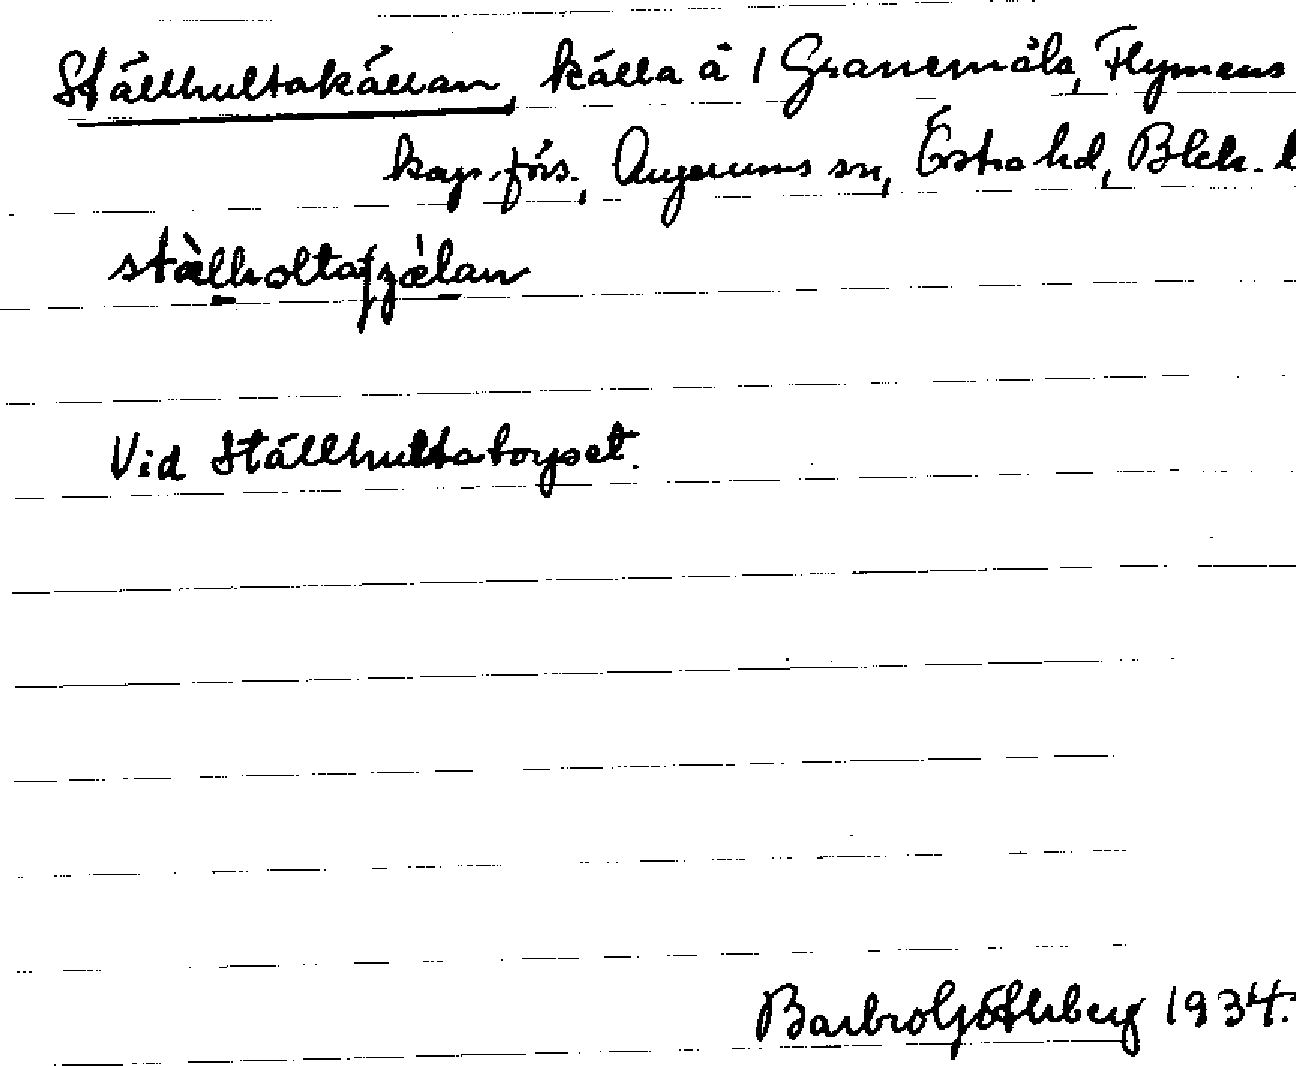 Ställhultakällan, källa å 1 Granemåla, Flymens
kap.förs., Augerums sn, Östra hd, Blek. l
stæ̀lholtaʃzǽlan
Vid Ställhultatorpet.
Barbro Götherberg 1934.